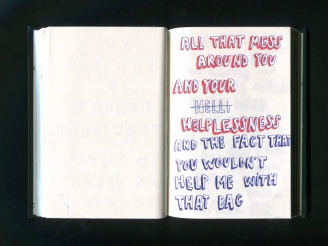 ALL THAT MESS
AROUND YOU
AND YOUR
HELL!
HELPLESSNESS
AND THE FACT THAT
YOU WOULDN'T
HELP ME WITH
THAT BAG